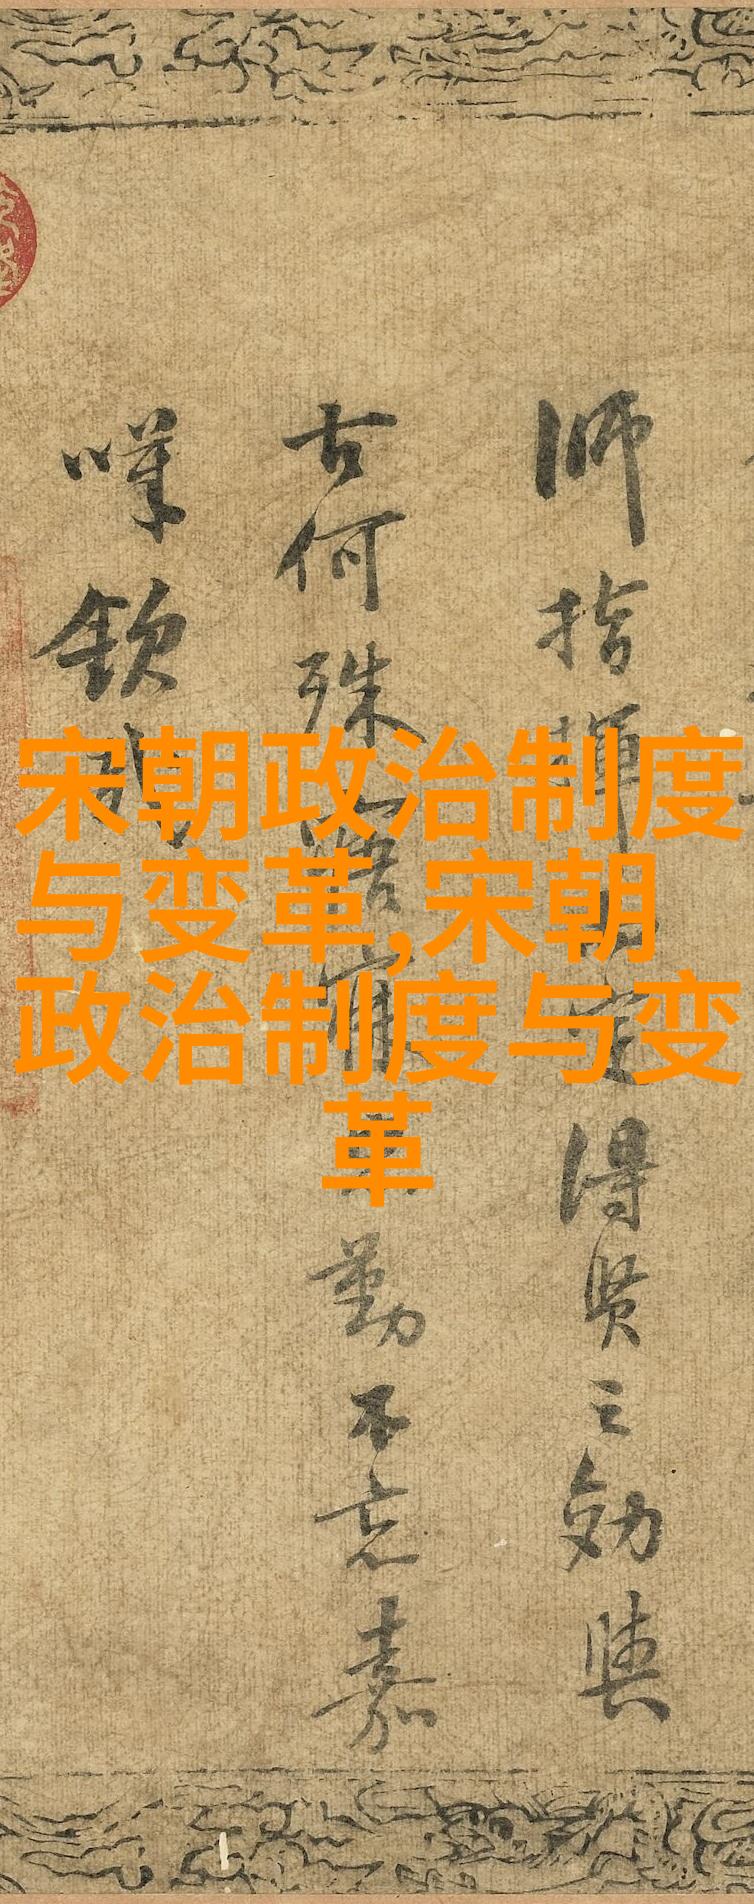 師指揮定得賢之効與
古何殊勤不忘嘉
嘆欽哉
宋朝政治制度
与变革,宋朝
政治制度与变
革